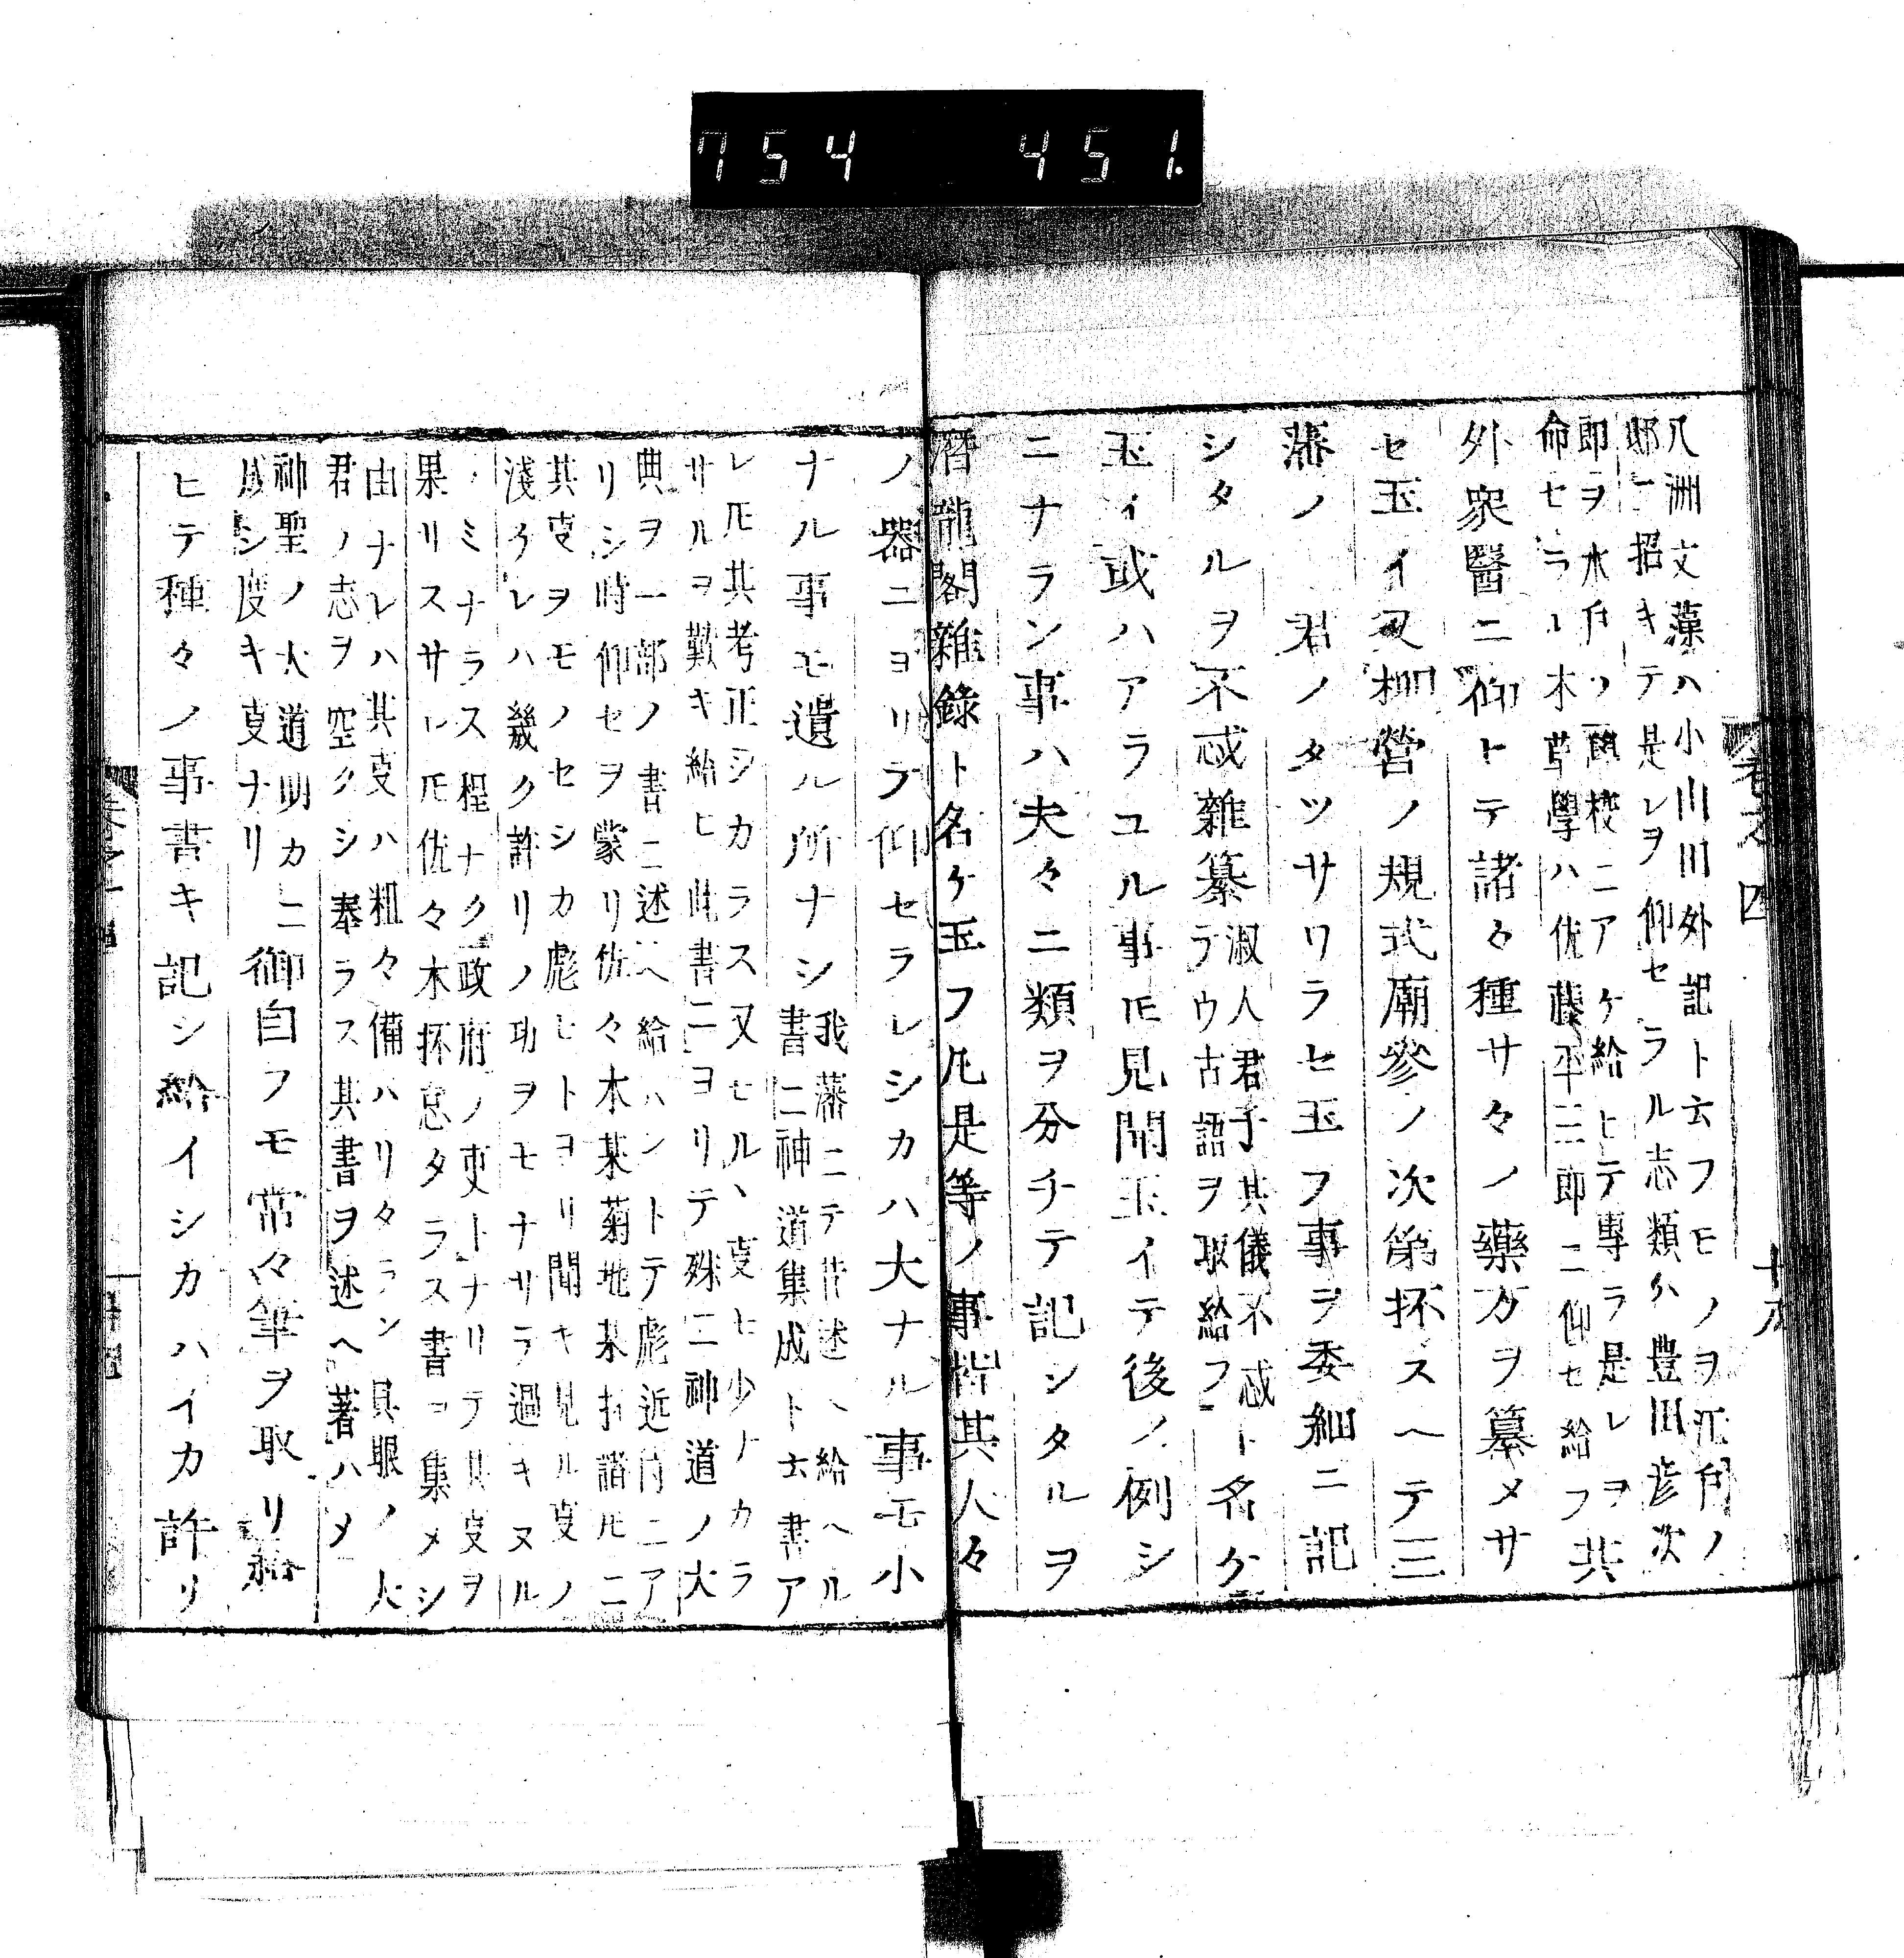 754 451.
八洲文藻ハ小山田外記ト云フモノヲ江戸ノ
邸ニ招キテ是レヲ仰セラル志類ハ豊田彦次
郎ヲ水戸ノ學校ニアケ給ヒテ專ラ是レヲ
命セラル本草學ハ佐藤平三郎ニ仰セ給フ共
外衆醫ニ仰トテ諸々種サ々ノ藥方ヲ纂メサ
セ玉イ又柳營ノ規式廟參ノ次第抔スヘテ三
藩ノ 君ノタツサワラセ玉フ事ヲ委細ニ記
シタルヲ不忒雜纂
淑人君子其儀不忒ト
ラウ古語ヲ取給フ
名ケ
玉イ或ハアラユル事𪜈見聞玉イテ後ノ例シ
ニナラン事ハ夫々ニ類ヲ分チテ記シタルヲ
潛龍閣雜錄ト名ケ玉フ凡是等ノ事皆其人々
卷之四 十九
ノ器ニヨリテ仰セラレシカハ大ナル事モ小
ナル事モ遺ル所ナシ
我藩ニテ昔述ヘ給ヘル
書ニ神道集成ト云書ア
レ𪜈其考正シカラス又モルヽ叓モ少ナカラ
サルヲ歎キ給ヒ此書ニヨリテ殊ニ神道ノ大
典ヲ一部ノ書ニ述ヘ給ハントテ彪近侍ニア
リシ時仰セヲ蒙リ佐々木某菊地某抔諸𪜈ニ
其叓ヲモノセシカ彪ヒトヨリ聞キ見ル叓ノ
淺クレハ幾ク許リノ功ヲモナサラ過キヌル
ノミナラス程ナク政府ノ吏トナリテ其叓ヲ
果リスサレ𪜈佐々木抔怠タラス書ヲ集メシ
由ナレハ其叓ハ粗々備ハリタラン具眼ノ人
君ノ志ヲ空クシ奉ラス其書ヲ述ヘ著ハメ
神聖ノ大道明カニ
成シ度キ叓ナリ
御自フモ常々筆ヲ取リ給
ヒテ種々ノ事書キ記シ給イシカハイカ許リ